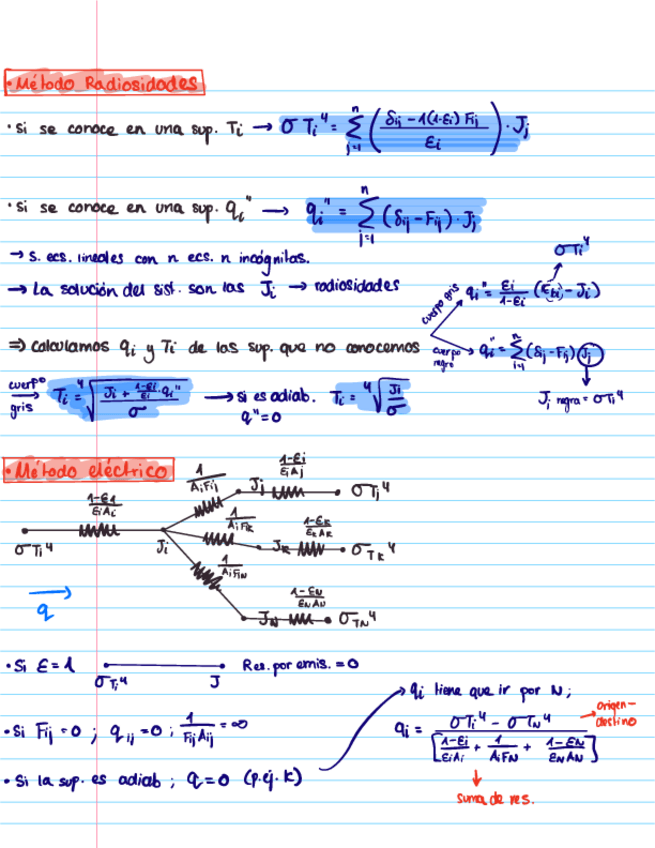 • Método Radiosidades
• Si se conoce en una sup. Ti → σ Ti⁴ = Σ_{j=1}^{n} ( (δij − 1(1-εi) Fij) / εi ) · Jj
• Si se conoce en una sup. qi" → qi" = Σ_{j=1}^{n} (δij − Fij) · Jj
σTi⁴
→ s. ecs. lineales con n ecs. n incógnitas.
→ La solución del sist. son las Ji → radiosidades
cuerpo gris qi" = εi / (1-εi) (Ebi − Ji)
⇒ calculamos qi y Ti de las sup. que no conocemos
cuerpo negro → qi" = Σ_{i=1}^{n} (δij − Fij) Jj
Jj negra = σTi⁴
cuerpo gris → Ti = ⁴√( (Ji + (1-εi)/εi · qi") / σ ) → si es adiab. q" = 0 Ti = ⁴√( Ji / σ )
• Método eléctrico
σTi⁴ (1-ε1)/(εiAi) Ji
1/(AiFij) Jj (1-εj)/(εjAj) σTj⁴
1/(AiFiK) JK (1-εK)/(εKAK) σTK⁴
1/(AiFiN) JN (1-εN)/(εNAN) σTN⁴
q
• Si ε = 1 σTi⁴ J Res. por emis. = 0
→ qi tiene que ir por N;
• Si Fij = 0 ; qij = 0 ; 1/(FijAij) = ∞
qi = (σTi⁴ − σTN⁴) / [ (1-εi)/(εiAi) + 1/(AiFN) + (1-εN)/(εNAN) ]
→ origen-destino
• Si la sup. es adiab ; q = 0 (p. ej. k)
suma de res.